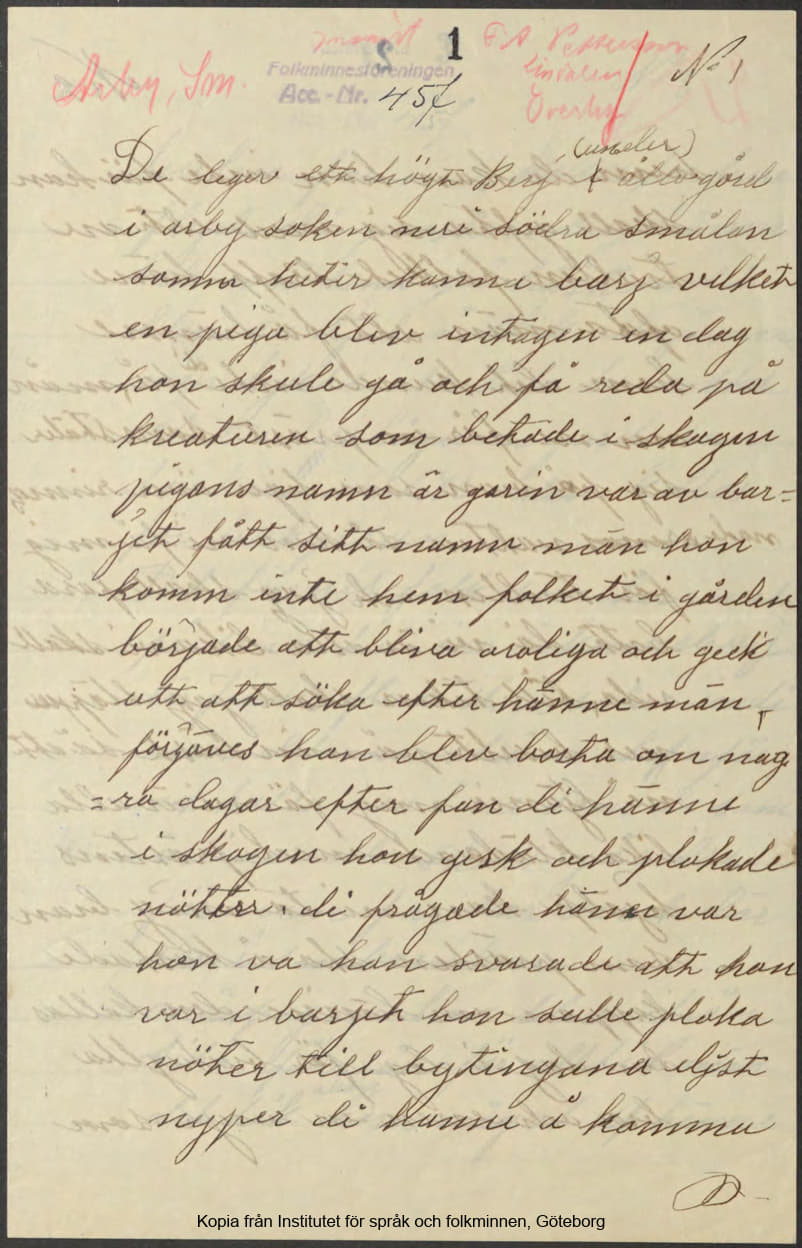 1
Arby, Sm.
Folkminnesföreningen
Acc.-Nr. 457
No 1
(under)
De leger ett högt Berj
i arby soken neri södra smålan
somm heter kanne barj vilket
en piga blev intagen en dag
hon skule gå och få reda på
kreaturen som betade i skogen
pigans namn är garin var av bar=
jet fått sitt namn män hon
komm inte hem folket i gården
började att bliva oroliga och geck
utt att söka efter hänne män
förjäves hon blev borta om någ
=ra dagar efter fan di hänne
i skogen hon gesk och plokade
nötter. di frågade hänne var
hon va hon svarade att hon
var i barjet hon sulle ploka
nöter till bytingana eljst
nyper di hanne å komma
Kopia från Institutet för språk och folkminnen, Göteborg